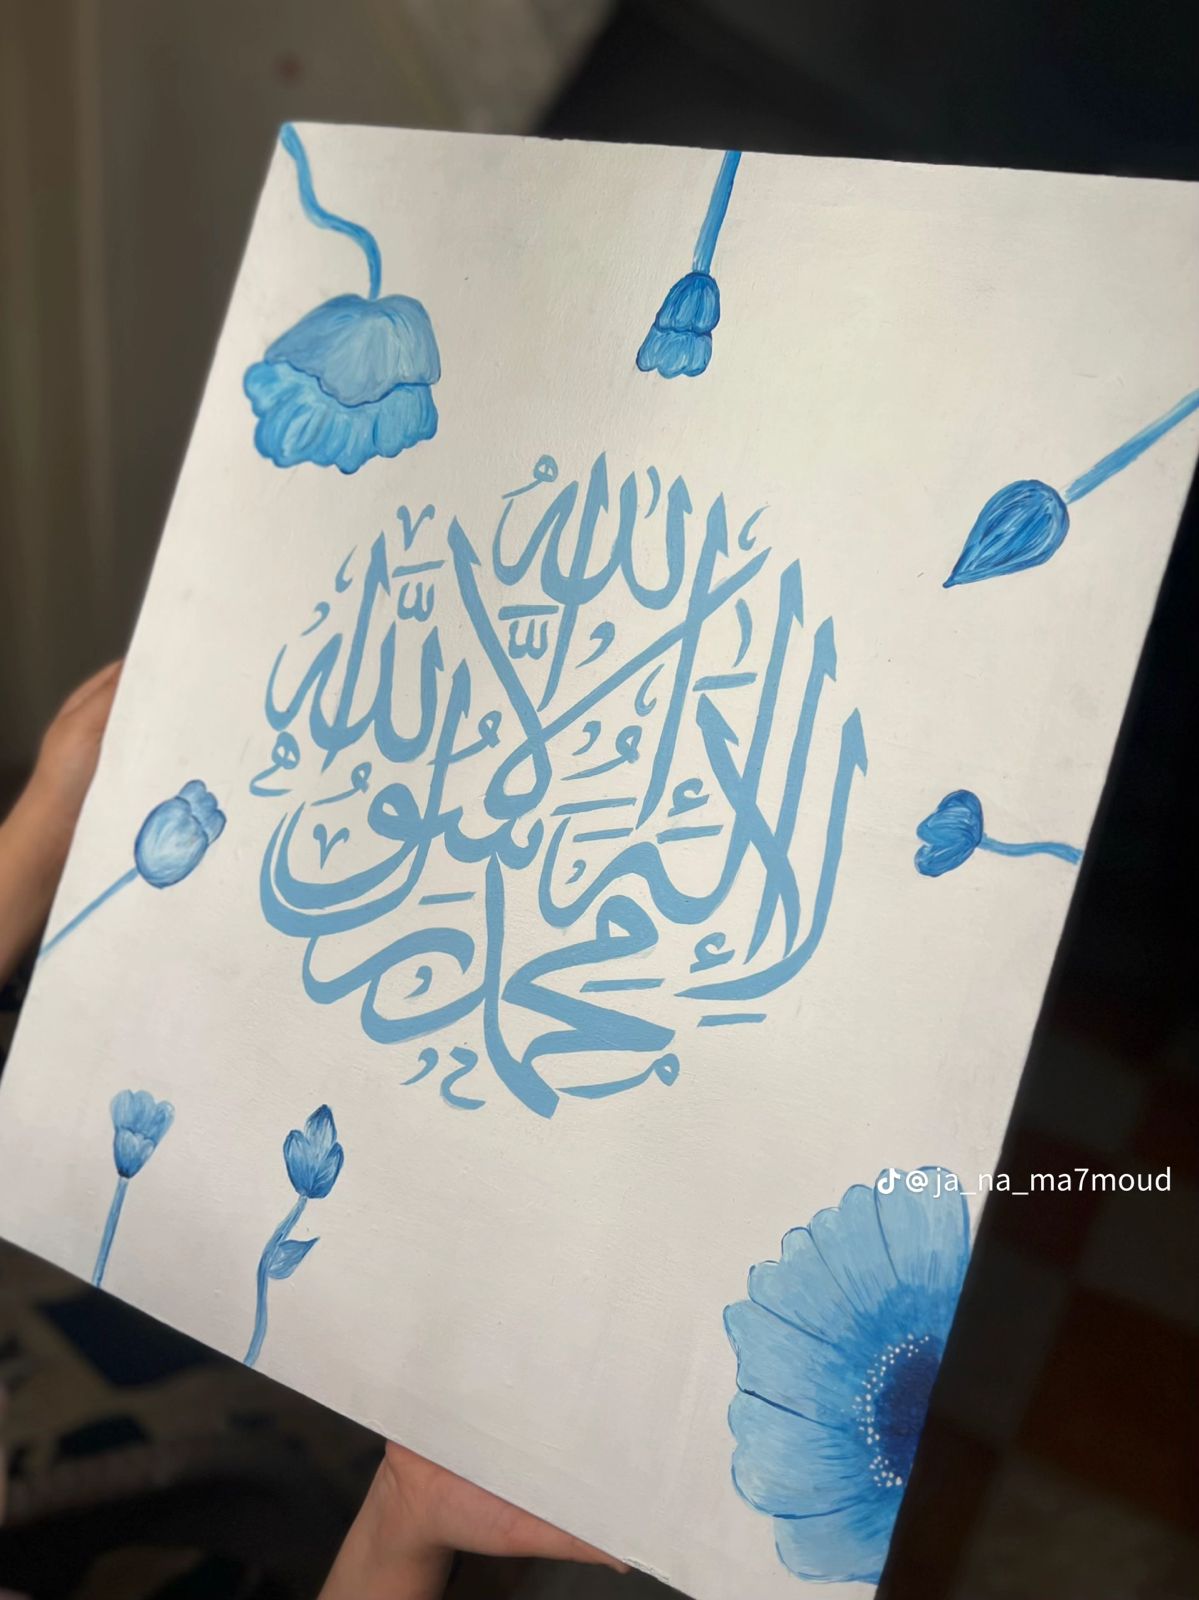 لَا إِلَٰهَ إِلَّا اللَّهُ
مُحَمَّدٌ رَسُولُ اللَّهِ
@ja_na_ma7moud